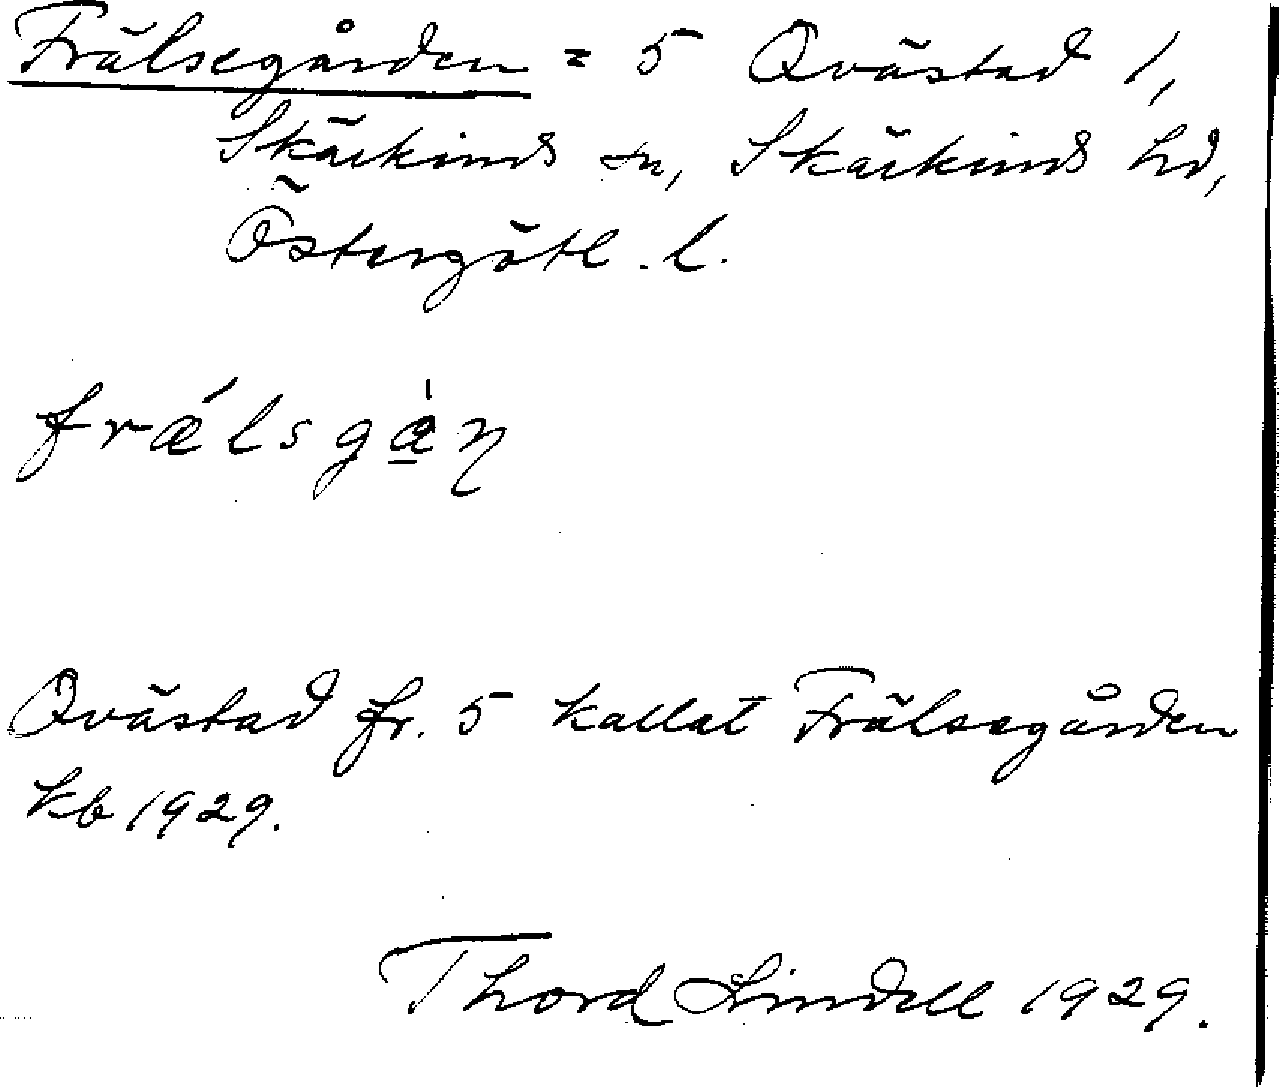 Frälsegården = 5 Qvästad 1,
Skärkinds sn, Skärkinds hd,
Östergötl. l.
frǽlsgæ̲̀n̥
Qvästad fr. 5 kallat Frälsegården
kb 1929.
Thord Lindell 1929.